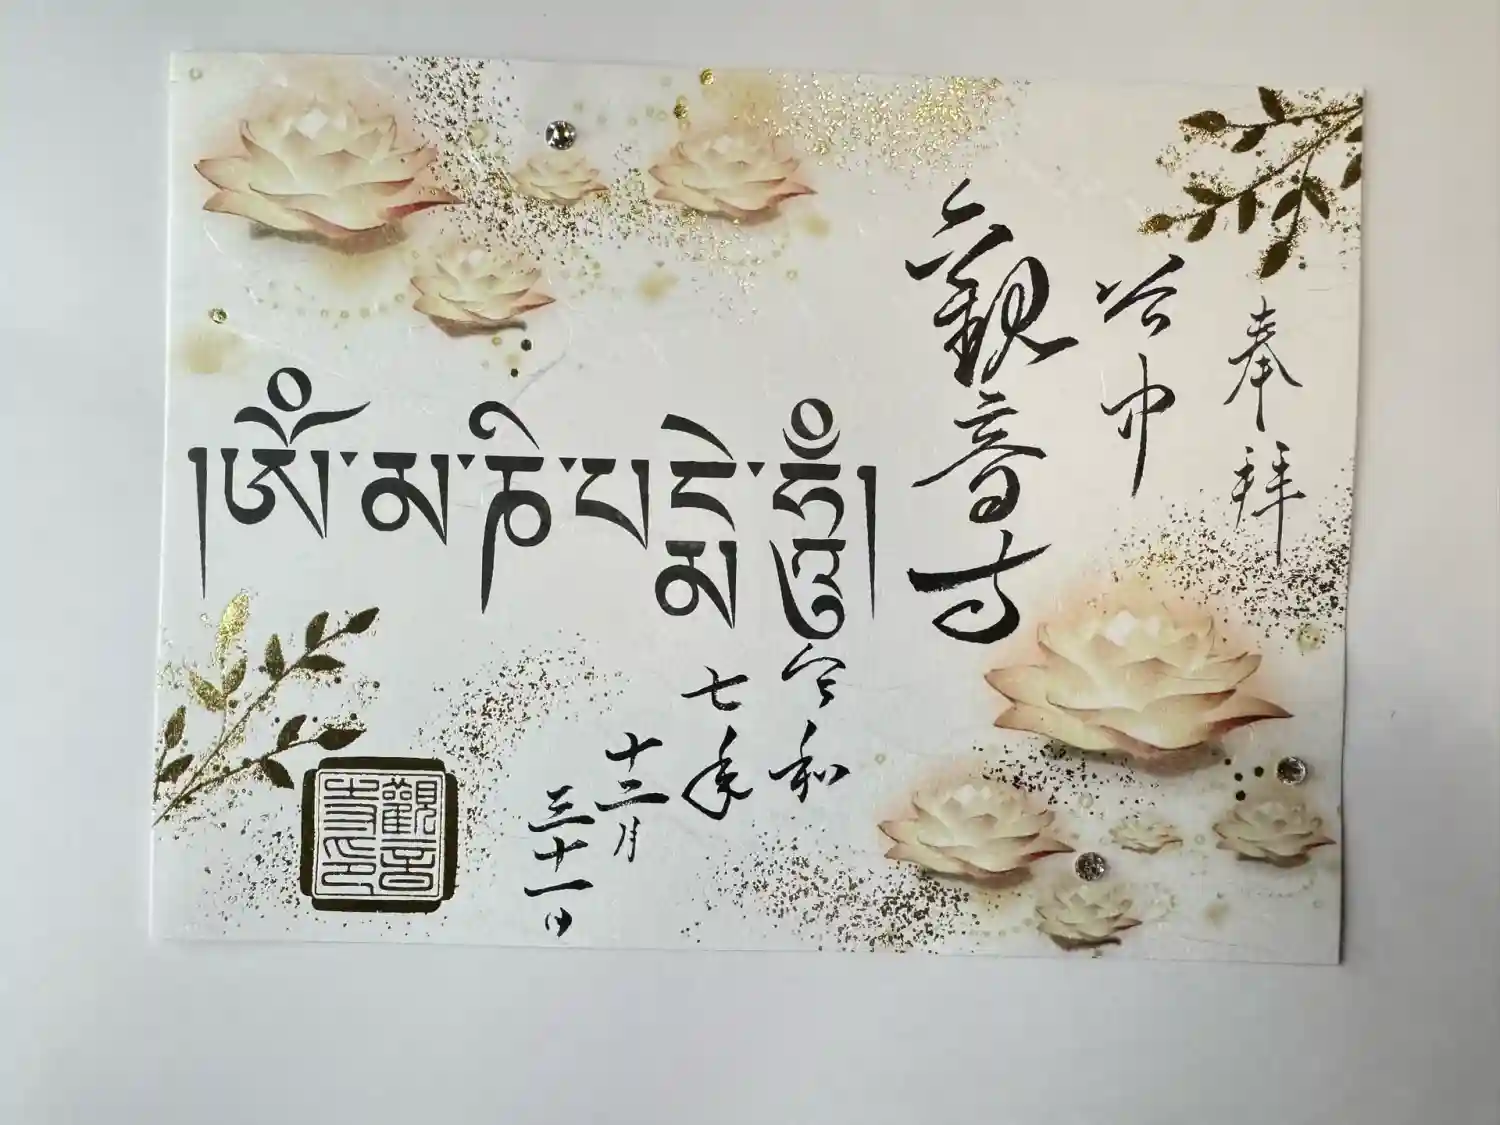 奉拝
谷中
觀音寺
།ཨོཾ་མ་ཎི་པདྨེ་ཧཱུྃ།
令和
七年
十二月
三十一日
觀音
寺印